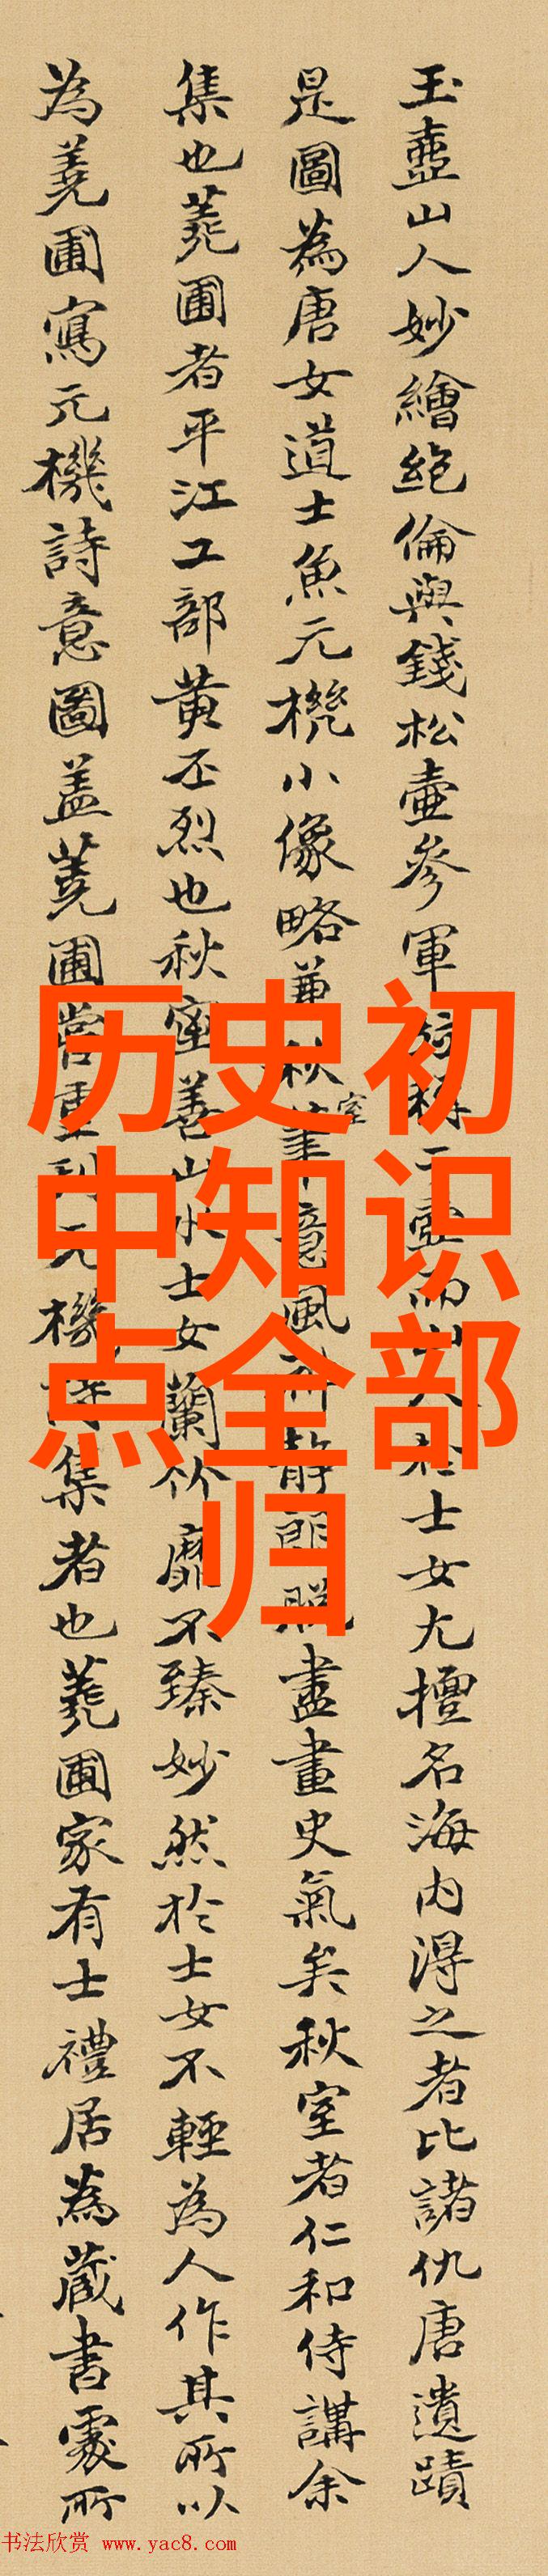 玉壼山人妙繪絕倫與錢松壷參軍
士女尤擅名海内得之者比諸仇唐遺蹟
是圖為唐女道士魚元機小像略兼秋
室
意風
靜
脫盡畫史氣矣秋室者仁和侍講余
集也蕘圃者平江工部黄丕烈也秋室善山水士女蘭竹靡不臻妙然於士女不輕為人作其所以
為蕘圃寫元機詩意圖盖蕘圃嘗重刊元機詩集者也蕘圃家有士禮居為蔵書處所
历史初
中知识
点全部
归
书法欣赏 www.yac8.com